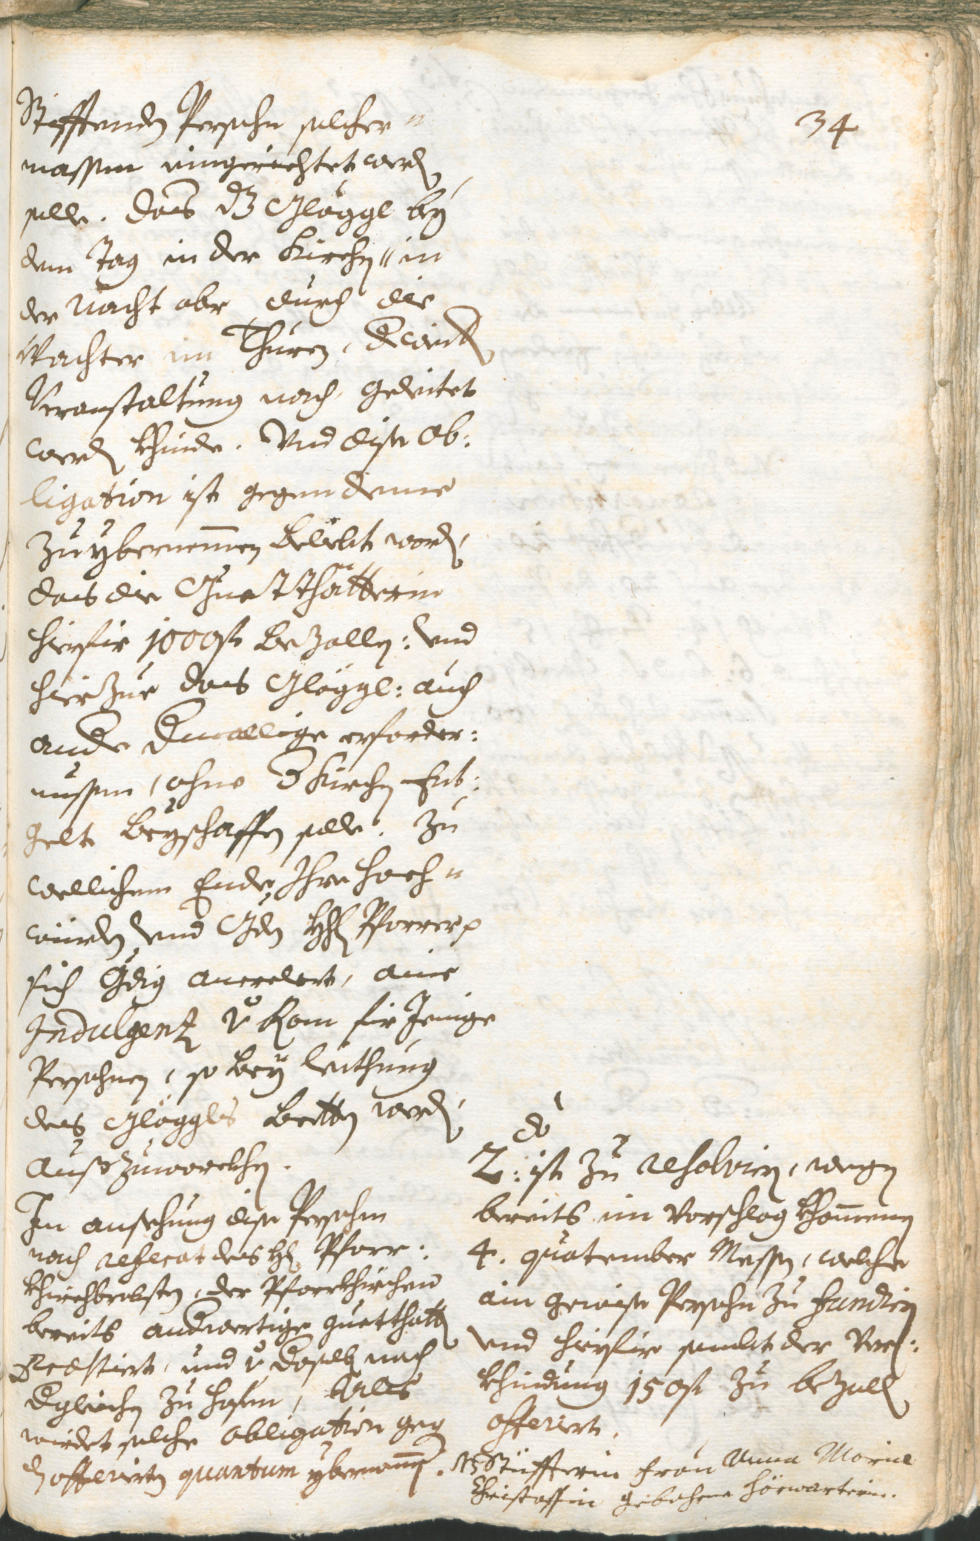 34
Stifftenden Persohn solcher
massen eingerichtet werd
solle. das dz Glöggl bey
dem Tag in der Kirchen in
der Nacht aber durch die
Wachter im Thuren,
Veranstaltung nach, geleitet
werd khinde. Und dise Ob:
ligation ist gegen deme
zu ybernemmen beliebt word,
das die Guetthätterin
hierfir 1000 fl bezallen: und
hierzue das Glöggl: auch
ande erforder:
nussen, ohne d Kirchen Ent:
gelt beyschaffen solle. Zu
wellichem Ende Ihre Hoch
würden und Gdn Pfarrer
sich gdig anerbiet, aine
Indulgentz v Rom für Jenige
Persohnen, so bey leithung
des Glöggls betten werd,
ausszuwürckhen.
In ansehung dise Persohn
nach referat des H Pfarr:
khirchbrobsten, der Pfarrkhirchen
bereits andwertige guetthatt
Praestiert, und v derselb noch
dgleichen zu hofen, Als
wirdet solche obligation geg
offerirten quantum ybernomm.
do
2: ist zu resolvirn, wegen
bereits im Vorschlag khommenen
4. quatember Messen, welche
ain gewise Persohn zu fundirn
und hierfir sambt der Ver:
khindung 150 fl zu bezallen
offerirt.
NB Stüffterin Frau Anna Maria
Christoffin gebohrne Hörwarterin.